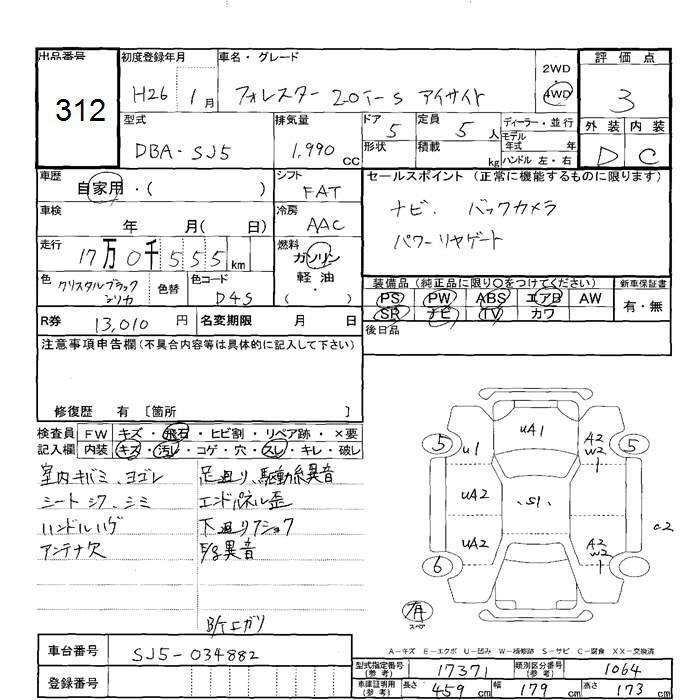 出品番号 初度登録年月 車名・グレード 2WD 評価点
312 H26 1月 フォレスター 2.0i-S アイサイト 4WD 3
型式 排気量 ドア 5 定員 5人 ディーラー・並行 外装 内装
DBA-SJ5 1,990 cc 形状 積載 kg モデル年式 年 D C
ハンドル 左・右
車歴 自家用・( ) シフト FAT セールスポイント (正常に機能するものに限ります)
車検 年 月( 日) 冷房 AAC ナビ. バックカメラ
走行 17万0千555km 燃料 ガソリン パワーリヤゲート
色 クリスタルブラックシリカ 色替 色コード D4S 軽油・( )
装備品 (純正品に限り○をつけてください) 新車保証書
PS PW ABS エアB AW 有・無
SR ナビ TV カワ
R券 13,010円 名変期限 月 日 後日品
注意事項申告欄(不具合内容等は具体的に記入して下さい)
修復歴 有 [箇所 ]
検査員 FW キズ・飛石・ヒビ割・リペア跡・×要
記入欄 内装 キズ・汚レ・コゲ・穴・スレ・キレ・破レ
室内キバミ、ヨゴレ 足廻り、駆動系異音
シートシワ、シミ エンドパネル歪
ハンドルハゲ 下廻りショウ
アンテナ欠 異音
エガリ
uA1
5 u1 A2 W2 1 5
uA2 S1
uA2 A2 W2 1
6
有
スペア
A-キズ E-エクボ U-凹み W-補修跡 S-サビ C-腐食 XX-交換済
車台番号 SJ5-034882
型式指定番号(参考) 17371 類別区分番号(参考) 1064
登録番号
車庫証明用(参考) 長さ 459cm 幅 179cm 高さ 173cm